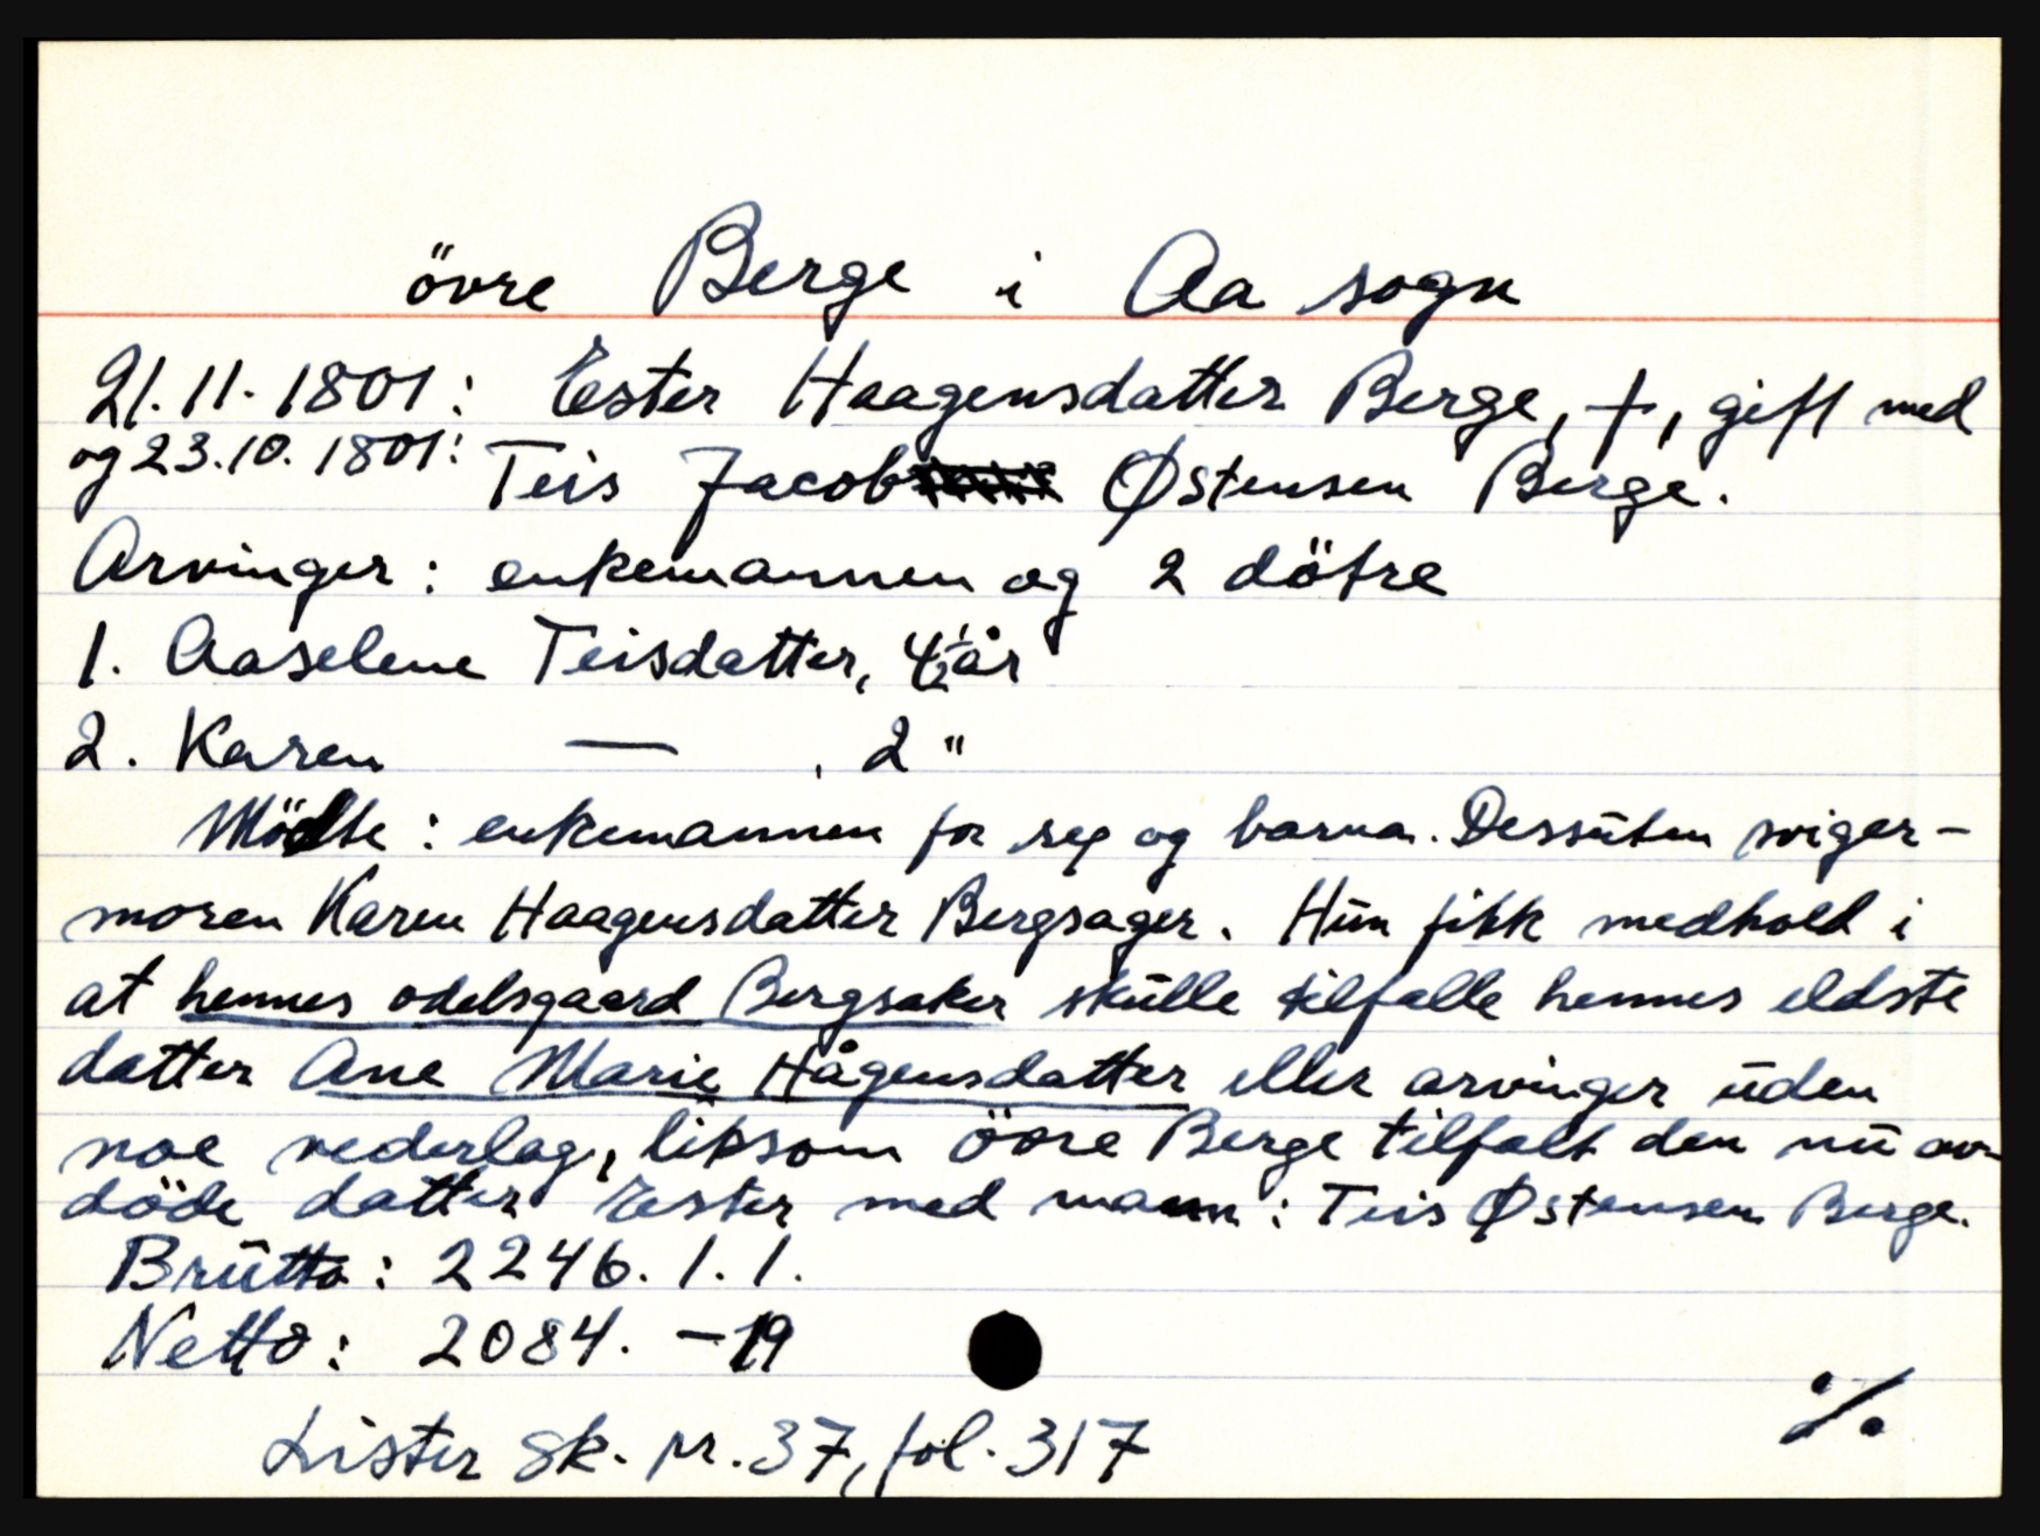 övre Berge i Aa sogn
21.11.1801: Ester Haagensdatter Berge, †, gift med
og 23.10.1801: Teis Jacob Østensen Berge.
Arvinger: enkemannen og 2 dötre
1. Aaselene Teisdatter, 4½ år
2. Karen — , 2 "
Mödte: enkemannen for seg og barna. Dessuten sviger-
moren Karen Haagensdatter Bergsager. Hun fikk medhold i
at hennes odelsgaard Bergsaker skulle tilfalle hennes eldste
datter Ane Marie Hågensdatter eller arvinger uden
noe vederlag, liksom övre Berge tilfalt den nu av-
döde datter Ester med mann: Teis Østensen Berge.
Brutto: 2246.1.1.
Netto: 2084. - 19
%
Lister sk. pr. 37, fol. 317